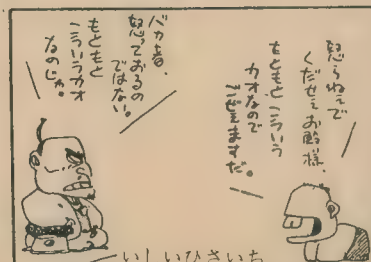 怒らねえで
くだせえお殿様、
もともと、こういう
カオなので
ごぜえますだ。
バカ者、
怒っておるの
ではない。
もともと
こういうカオ
なのじゃ。
いしいひさいち